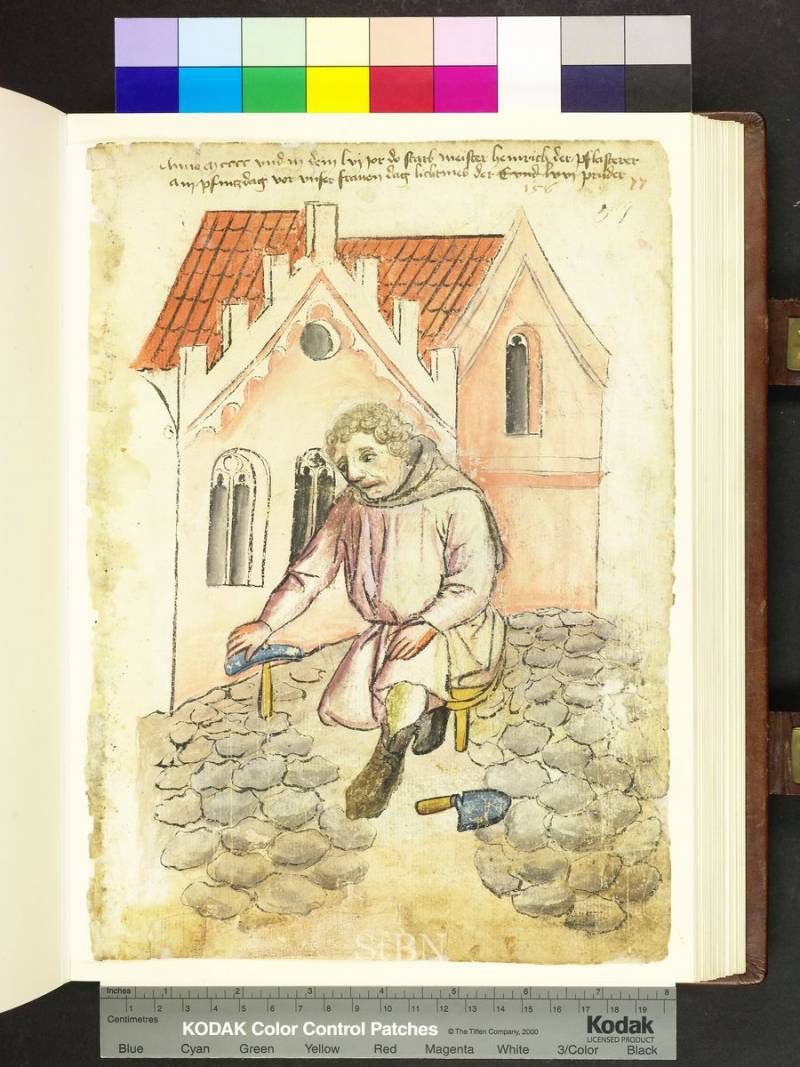 Anno mcccc vnd in dem lvi jor do starb meister heinrich der pflasterer
am pfincztag vor vnser frawen dag lichtmes der Cvnd lxvi pruder 77
156
StBN
Inches 1 2 3 4 5 6 7 8
1 2 3 4 5 6 7 8 9 10 11 12 13 14 15 16 17 18 19
Centimetres
KODAK Color Control Patches © The Tiffen Company, 2000 Kodak
LICENSED PRODUCT
Blue Cyan Green Yellow Red Magenta White 3/Color Black